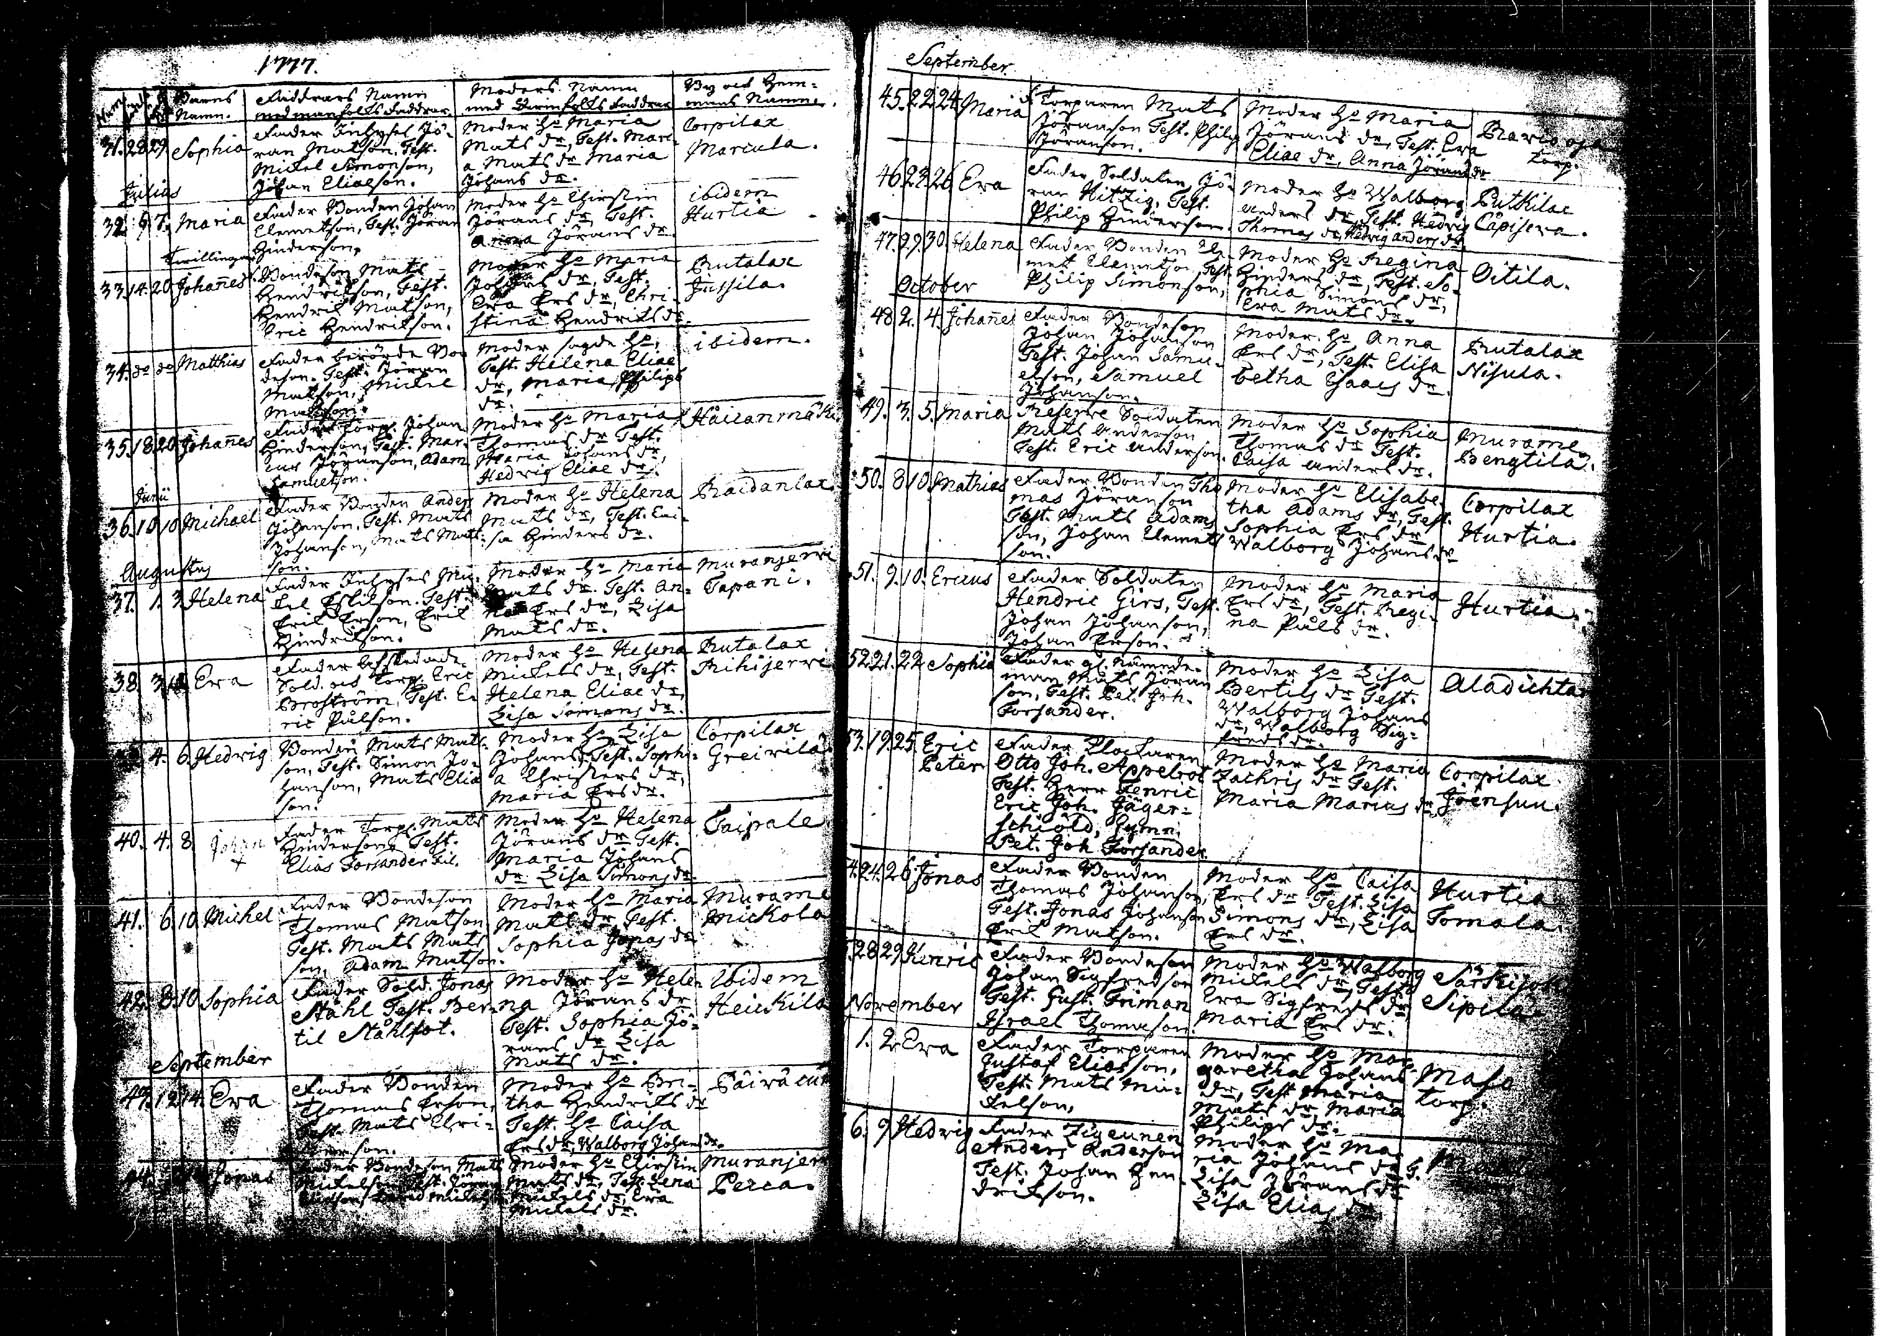 1777.
Barns Namn. Faddrars Namn med manfolks Faddrar. Moders Namn med Qvinfolks Faddrar By och Hem=mans Namn.
31. 28 29 Sophia Fader Inhyses Jö=
ran Matson. Test.
Mickel Simonson,
Johan Eliæson.
Moder Ho Maria
Mats dr, Test. Mari=
a Mats dr Maria
Johans dr.
Corpilax
Marcula.
Julius
32. 6 7. Maria Fader Bonden Johan
Clemetson, Test. Jöran
Hinderson,
Moder Ho Chirstin
Jörans dr, Test.
Anna Jörans dr.
ibidem
Hurtia
Twillingar
33. 14. 20. Johañes Bondeson Mats
Hendrikson, Test.
Hendrik Matson,
Eric Hendrikson.
Moder Ho Maria
Johans dr, Test.
Eva Ers dr, Chri=
stina Hendriks dr.
Rutalax
Jussila.
34. do do Matthias Fader berörde Bon
deson. Test. Jöran
Matson, Mickel
Matson.
Moder sagde Ho,
Test. Helena Eliae
dr, Maria Philips
dr.
ibidem.
35. 18. 20. Johañes Fader Torp. Johan
Hinderson, Test. Mar=
cus Jöranson, Adam
Samuelson.
Moder Ho Maria
Thomas dr Test.
Maria Johans dr,
Hedvig Eliae dr.
Haccanmäki
Junii
36. 10 10 Michael Fader Bonden Anders
Johanson, Test. Mats
Johanson, Mats Mats=
son.
Moder Ho Helena
Mats dr, Test. Cai=
sa Hinders dr.
Raidanlax
Augustus
37. 1. 3. Helena Fader Inhyses Mic=
kel Eskilson. Test.
Erik Erson, Erik
Hindrikson.
Moder Ho Maria
Mats dr. Test. An=
na Ers dr, Lisa
Mats dr.
Muranjerwi
Tapani.
38. 3. Eva Fader
Sold. och Torp. Eric
Broström, Test. E
ric Pålson.
Moder Ho Helena
Mickels dr, Test.
Helena Eliae dr,
Lisa Simons dr.
Rutalax
Rihijerwi
4. 6. Hedwig Bonden Mats Mats=
son, Test. Simon Jo=
hanson, Mats Elia
son.
Moder Ho Lisa
Johans, Test. Sophi=
a Christers dr,
Maria Ers dr.
Corpilax
Greivilä
40. 4. 8 Johan Fader Torp. Mats
Hinderson, Test.
Elias Forsander
Moder Ho Helena
Jörans dr Test.
Maria Johans
dr Lisa Simons dr
Taipale
41. 6. 10. Michel Fader Bondeson
Thomas Matson
Test. Mats Mats
son, Adam Matson.
Moder Ho Maria
Mats dr Test.
Sophia Jonas dr
Murame
Mickola
42. 8. 10 Sophia Fader Sold. Jonas
Stahl Test. Ber=
til Stålfot.
Moder Ho Hele
na Jörans dr
Test. Sophia Jö=
rans dr Lisa
Mats dr.
Ibidem
Heickilä
September
43. 12. 14. Eva Fader Bonden
Thomas Erson,
Test. Mats Chri=
sterson.
Moder Ho Bri=
tha Hendriks dr
Test. Ho Caisa
Ers dr, Walborg Johans dr.
44. Jonas Fader Bondeson Mats
Mickelson, Test. Jöran
Moder Ho Chirstin
Mats dr, Test. Lena
Mickels dr, Eva
Mickels dr.
Muranjerwi
Perca.
September
45. 22. 24. Maria F. Torparen Mats
Jöranson Test. Philip
Jöranson.
Moder Ho Maria
Jörans dr, Test. Eva
Eliae dr, Anna Jörans dr
Torp.
46. 22. 26 Eva Fader Soldaten Jö=
ran Hitzig, Test.
Philip Hinderson.
Moder Ho Walborg
Anders dr, Test. Hedvig
Thomas dr, Hedvig Anders dr
Putkilax
47. 29. 30. Helena Fader Bonden Cle
met Clemetson, Test
Philip Simonson,
Moder Ho Regina
Hinders dr, Test. So=
phia Simons dr,
Eva Mats dr.
Oitila.
October
48 2. 4. Johañes Fader Bondeson
Johan Johanson
Test. Johan Samu=
elson, Samuel
Johanson.
Moder Ho Anna
Ers dr, Test. Elisa
betha Isaacs dr.
Rutalax
Nisula.
49. 3. 5. Maria Reserve Soldaten
Mats Anderson
Test. Eric Anderson.
Moder Ho Sophia
Thomas dr Test.
Caisa Anders dr.
Murame
Bengtilä.
50. 8 10. Mathias Fader Bonden Tho
mas Jöranson
Test. Mats Adams
son, Johan Clemet
son.
Moder Ho Elisabe
tha Adams dr, Test.
Sophia Ers dr
Walborg Johans dr
Corpilax
Hurtia.
51. 9. 10. Ericus Fader Soldaten
Hendric Girs, Test.
Johan Johanson,
Johan Erson.
Moder Ho Maria
Ers dr, Test. Regi=
na Påls dr.
Hurtia.
52. 21. 22 Sophia Fader gl. Nämnde=
man Mats Jöran
son, Test. Pet. Joh.
Forsander.
Moder Ho Lisa
Bertils dr Test.
Walborg Johans
dr, Walborg Sig=
freds dr.
53. 19. 25. Eric
Peter Fader Klockaren
Otto Joh. Appelrot
Test. Herr Henric
Eric Joh. Jäger=
schiöld, Gymn.
Pet. Joh Forsander
Moder Ho Maria
Zachris dr Test.
Maria Marius dr
Corpilax
Joensuu.
24. 26. Jonas Fader Bonden
Thomas Johanson,
Test. Jonas Johanson
Erik Matson.
Moder Ho Caisa
Ers dr Test. Lisa
Simons dr, Lisa
Ers dr.
Hurtia
Tomala.
28 29 Henric Fader Bondeson
Johan Sigfredson
Test. Gust. Friman
Israel Thomason.
Moder Ho Walborg
Mickels dr, Test.
Eva Sigfreds dr
Maria Ers dr.
Särkijoki
Sipilä
November
1. 2. Eva Fader Torparen
Gustaf Eliasson,
Test. Mats Mic=
kelson,
Moder Ho Mar=
garetha Johans
dr, Test Maria
Mats dr Maria
Philips dr.
Maso
torp.
6. 9. Hedwig Fader Zigeunen
Anders Anderson
Test. Johan Hen=
drikson.
Moder Ho Ma=
ria Johans dr
Lisa Jörans dr
Lisa Elias dr